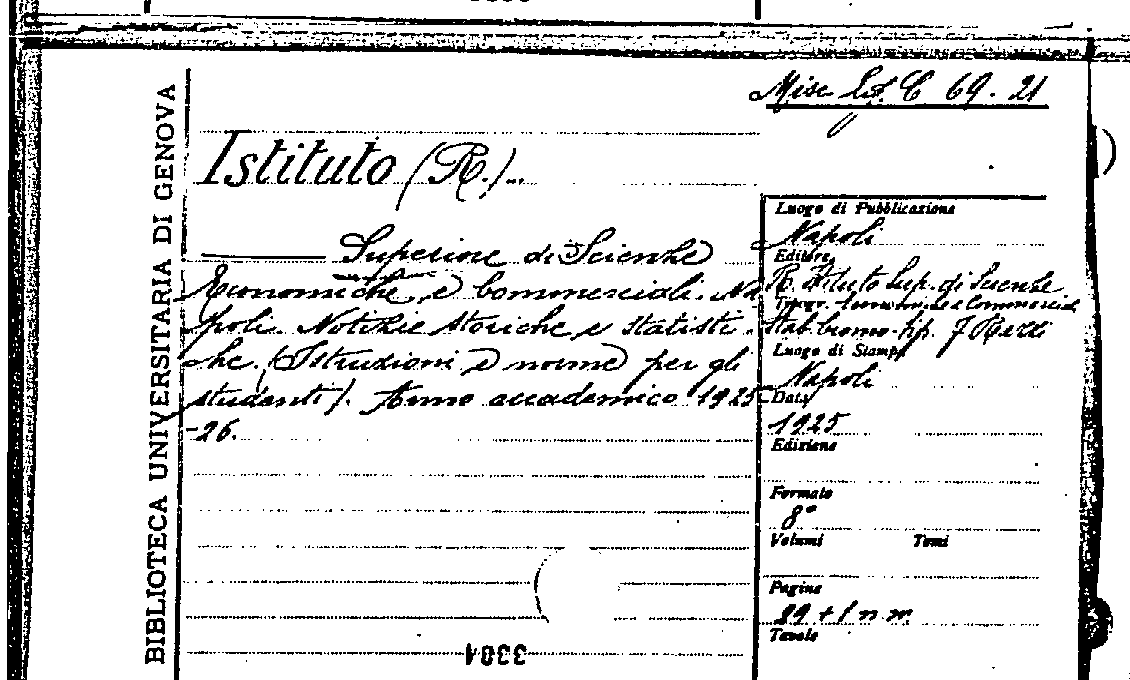 BIBLIOTECA UNIVERSITARIA DI GENOVA
Misc. C 69. 21
Istituto (R.)...
Superiore di Scienze
Economiche e Commerciali. Na
poli. Notizie storiche e statisti-
che. (Istruzioni e norme per gli
studenti). Anno accademico 1925
-26.
Luogo di Pubblicazione
Napoli
Editore
R. Istituto Sup. di Scienze
Tipogr. Economiche e Commerciali
Stab. cromo-tip.
Luogo di Stampa
Napoli
Data
1925
Edizione
Formato
8°
Volumi Tomi
Pagine
29 + 1 n. n.
Tavole